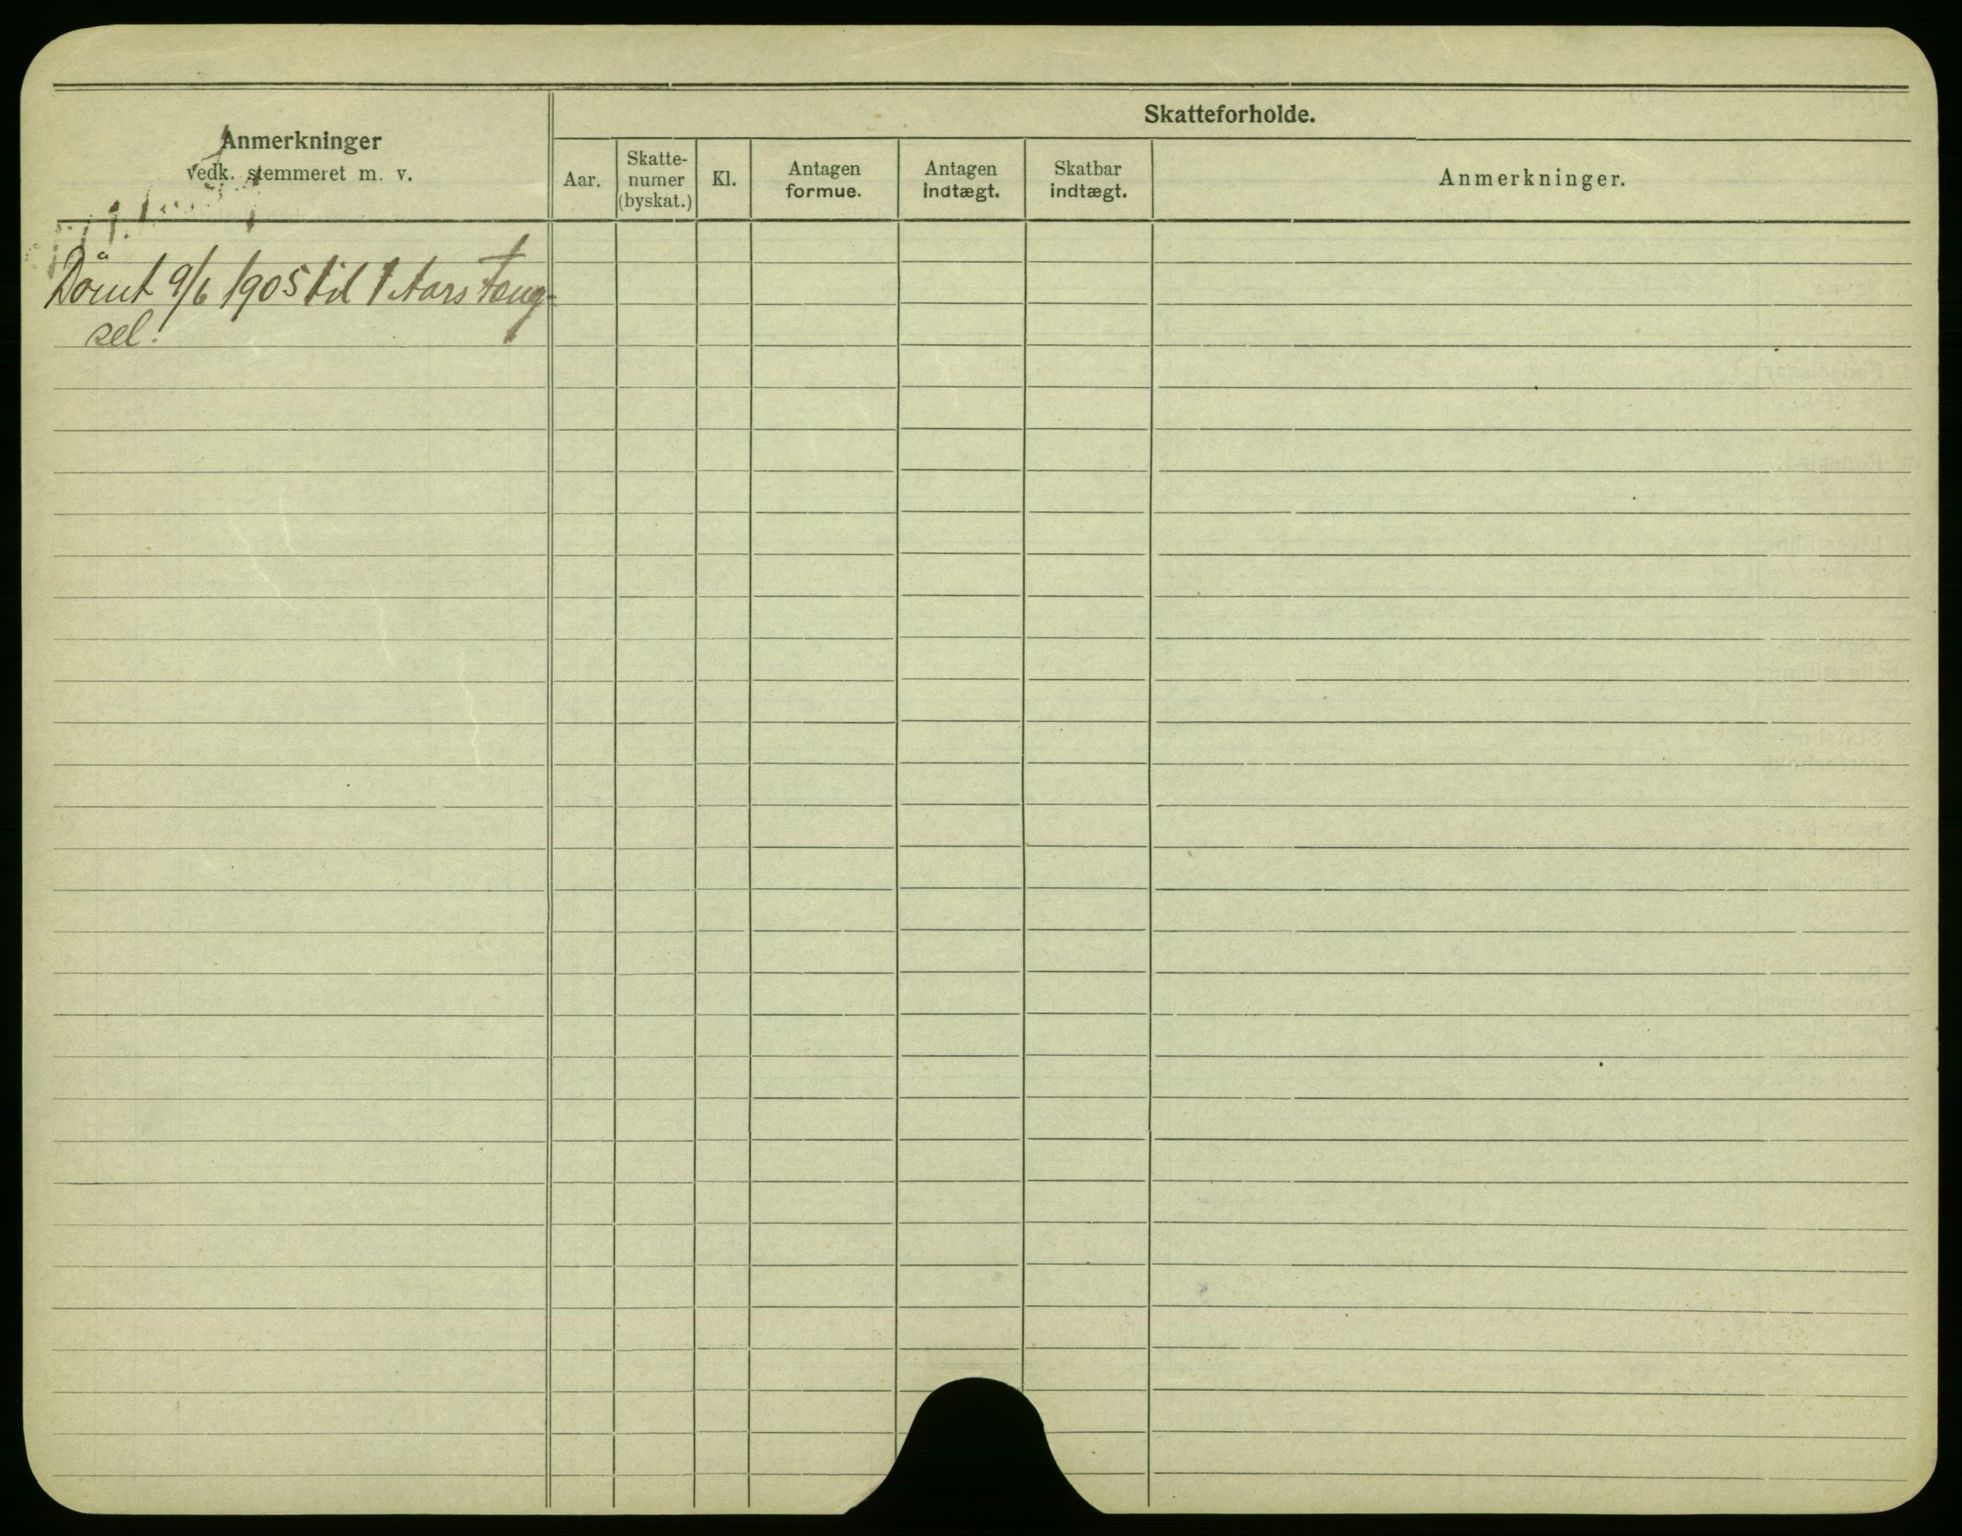 Skatteforholde.
Anmerkninger
vedk. stemmeret m. v.
Aar.
Skatte-
numer
(byskat.)
Kl.
Antagen
formue.
Antagen
indtægt.
Skatbar
indtægt.
Anmerkninger.
Dömt 9/6 1905 til 1 Aars Fæng-
sel.